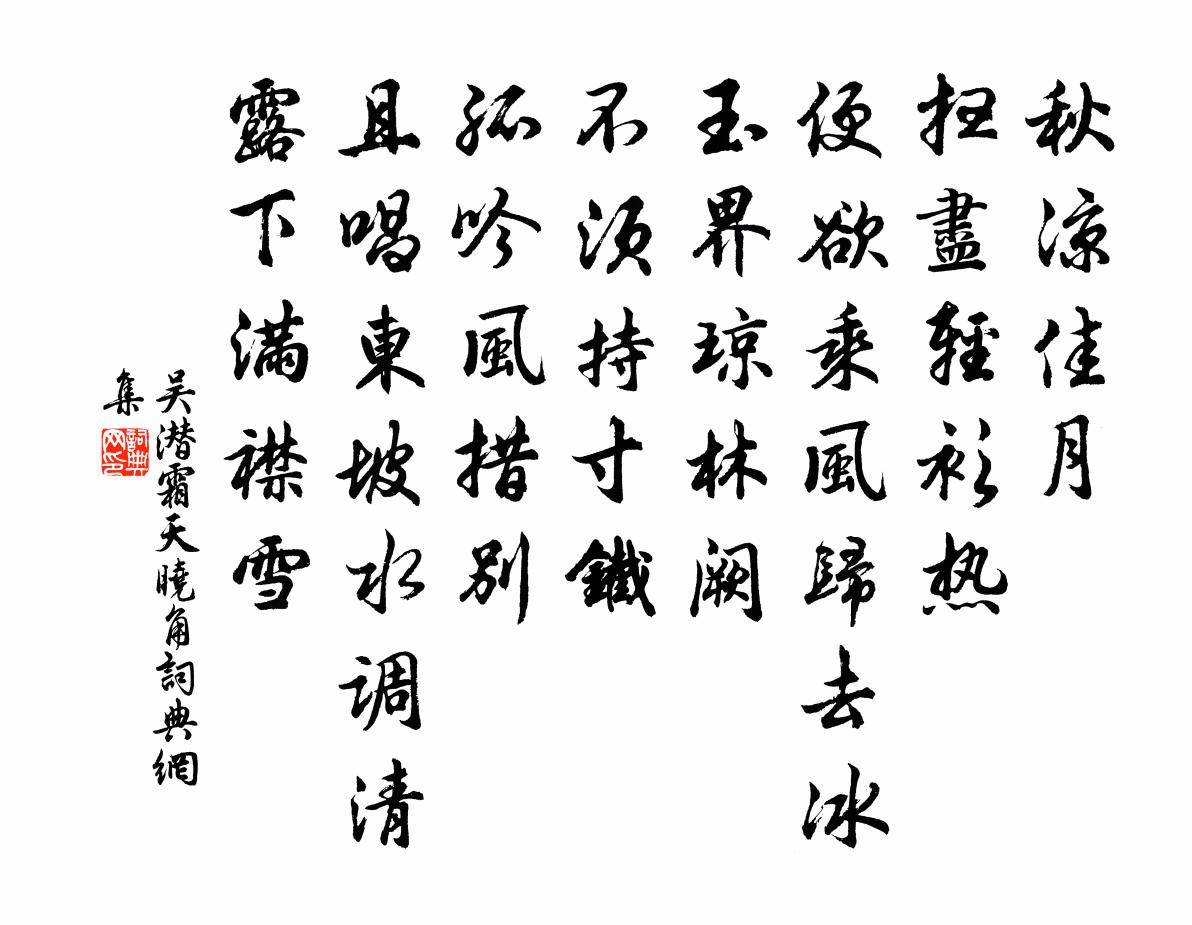 秋涼佳月
扫盡輕衫热
便欲乘風歸去冰
玉界琼林阙
不须持寸鐵
孤吟風措别
且唱東坡水调清
露下满襟雪
吴潜霜天曉角詞典網
集
詞典网印